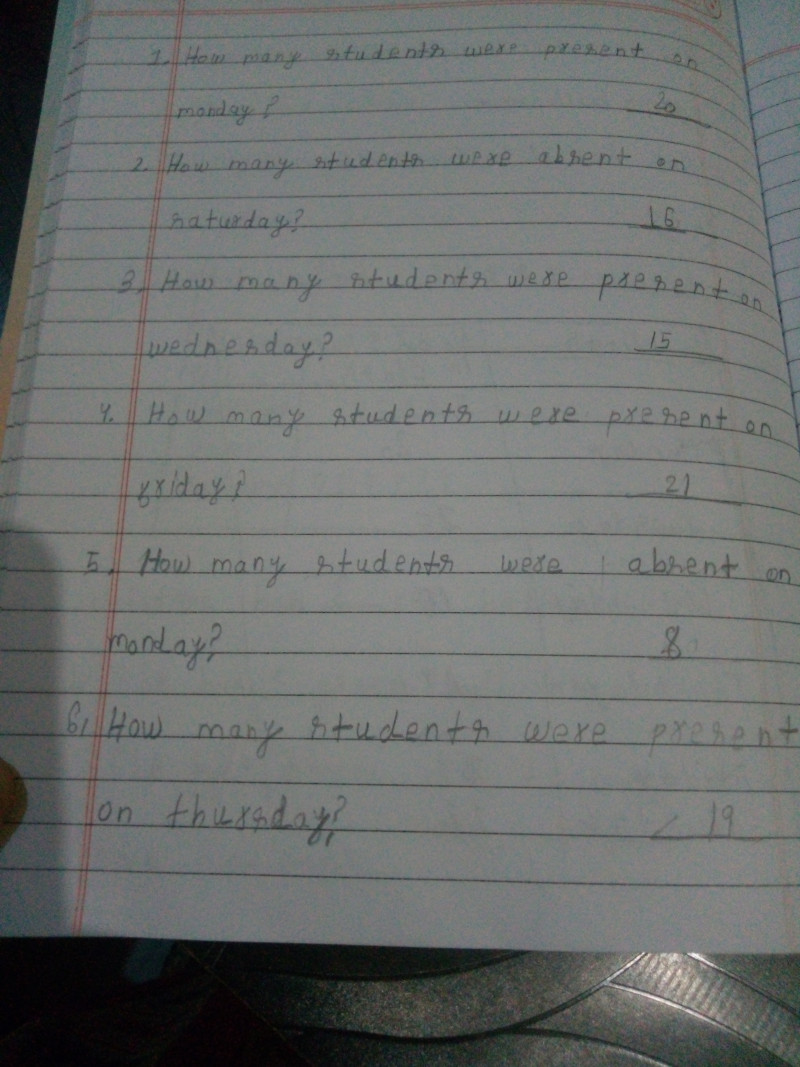 1. How many students were present on
monday? 20
2. How many students were absent on
saturday? 16
3. How many students were present on
wednesday? 15
4. How many students were present on
friday? 21
5. How many students were absent on
monday? 8
6. How many students were present
on thursday? 19